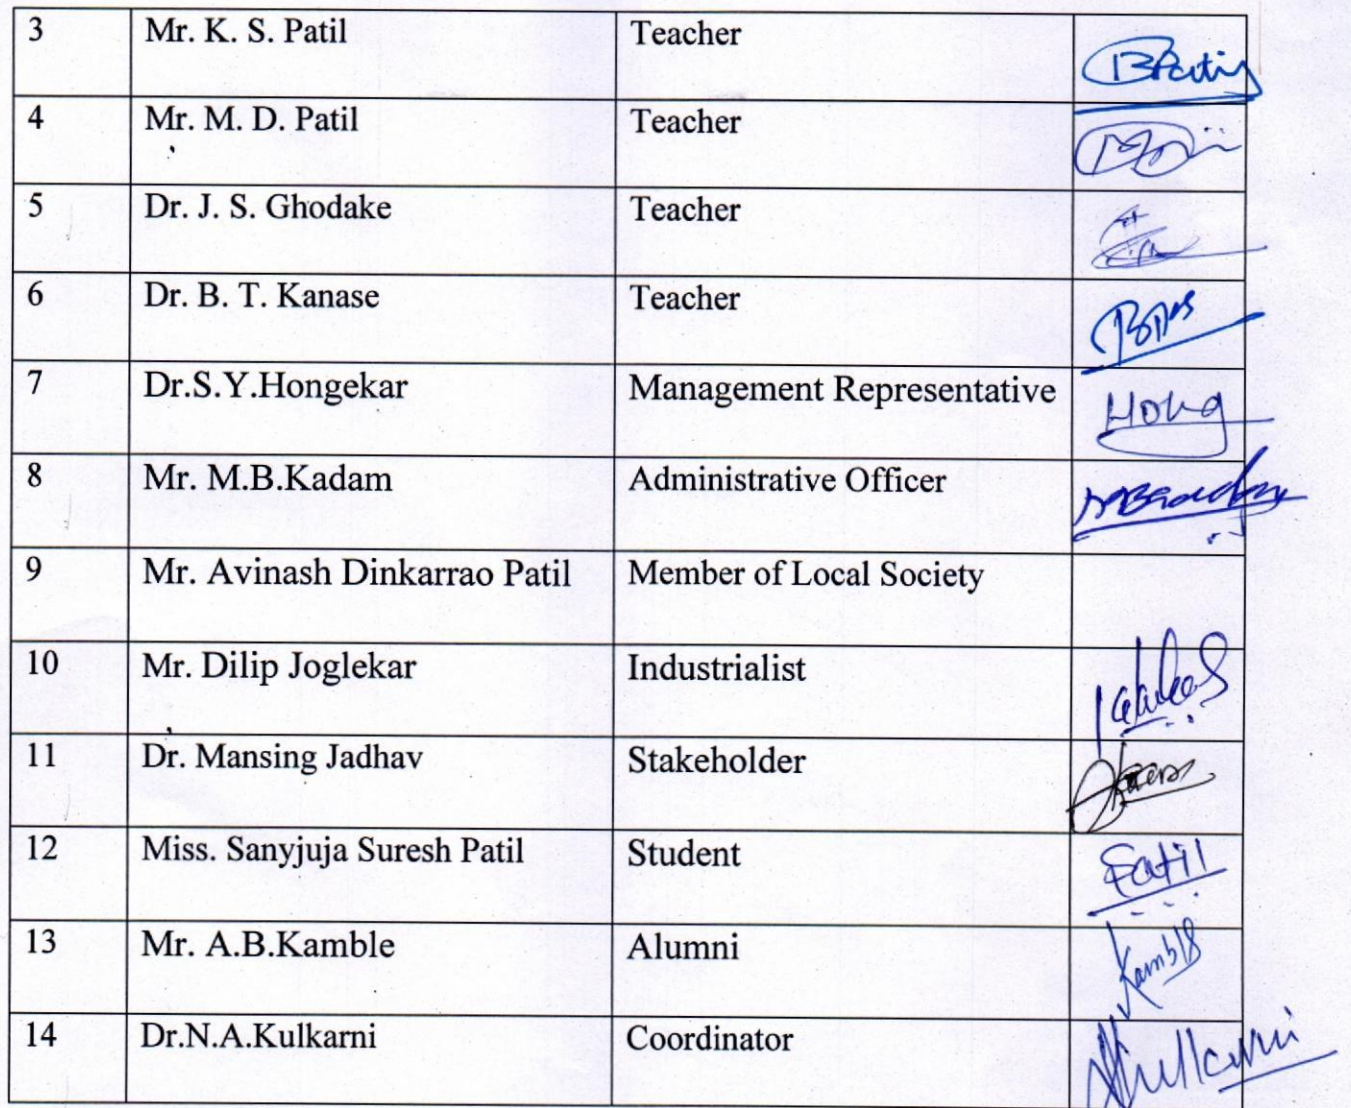 3 Mr. K. S. Patil Teacher
4 Mr. M. D. Patil Teacher
5 Dr. J. S. Ghodake Teacher
6 Dr. B. T. Kanase Teacher
7 Dr.S.Y.Hongekar Management Representative Hong
8 Mr. M.B.Kadam Administrative Officer
9 Mr. Avinash Dinkarrao Patil Member of Local Society
10 Mr. Dilip Joglekar Industrialist
11 Dr. Mansing Jadhav Stakeholder
12 Miss. Sanyjuja Suresh Patil Student
13 Mr. A.B.Kamble Alumni
14 Dr.N.A.Kulkarni Coordinator